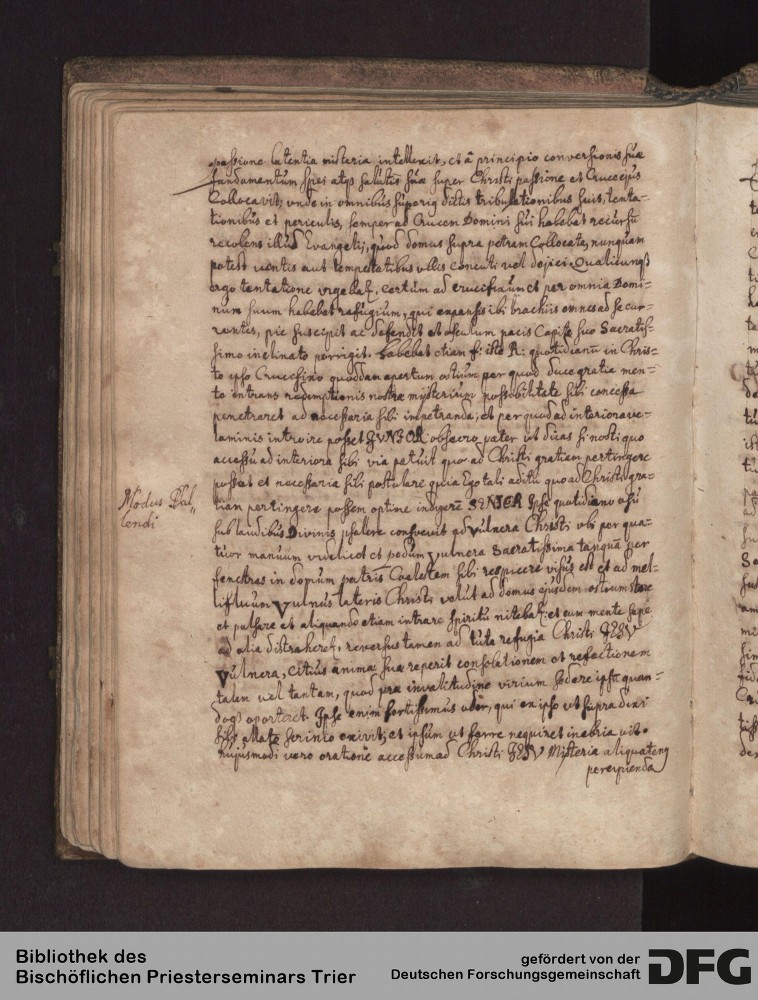 passione latentia misteria intellexit, et â principio conversionis suæ
fundamentum spei atq; salutis suæ super Christi passione et Cruce ejus
Collocavit; unde in omnibus superiq dictis tribulationibus suis, tenta-
tionibus et periculis, semper ad Crucem Domini sui habebat recursū
recolens illud Evangelij, quod domus supra petram Collocata, nunquam
potest ventis aut tempestatibus ullis concuti vel dejici. Qualicunq;
ergo tentatione urgebat, certum ad crucifixum et per omnia Domi-
num suum habebat rafugium, qui expansis ibi brachiis omnes ad se cur-
rentes, pie suscipit ac defendit et osculum pacis Capite suo Sacratis-
simo inclinato porrigit. habebat etiam f: iste R: quotidianū in Chris-
to ipso Crucifixo quoddam apertum ostium, per quod duce gratia men-
te intrans redemptionis nostræ mysterium possibilitate sibi concessa
penetraret ad necessaria sibi impetranda; et per quod ad interiora ve-
laminis introire posset JUNIOR obsecro pater ut dicas si nosti quo
accessu ad interiora sibi via patuit quo ad Christi gratiam pertingere
posset et necessaria sibi postulare quia Ego tali aditu quo ad Christi gra-
tiam pertingere possem optime indigerē SENIOR Ipse quotidiano usu
sub laudibus Divinis psallere consuevit ad vulnera Christi ubi per qua-
tuor manuum videlicet et pedum vulnera Sacratissima tanquā per
fenestras in domum patris Coelestem sibi respicere visus est et ad mel-
lifluum Vulnus lateris Christi velut ad domus ejusdem ostium stare
et pulsare et aliquando etiam intrare Spiritu nitebat; et cum mente sæpe
ad alia distraheret, reversus tamen ad tuta refugia Christi JESV
Vulnera, citius animæ suæ reperit consolationem et refectionem
talem vel tantam, quod præ invalitudine virium sedere ipsū quan-
doq; oportet. Ipse enim fortissimus
exivit; et ipsum ut ferre nequiret inebriavit.
hujusmodi vero oratione accessum ad Christi JESV Misteria aliquateng
percipienda
Modus Psal-
lendi
Bibliothek des
Bischöflichen Priesterseminars Trier
gefördert von der
Deutschen Forschungsgemeinschaft
DFG